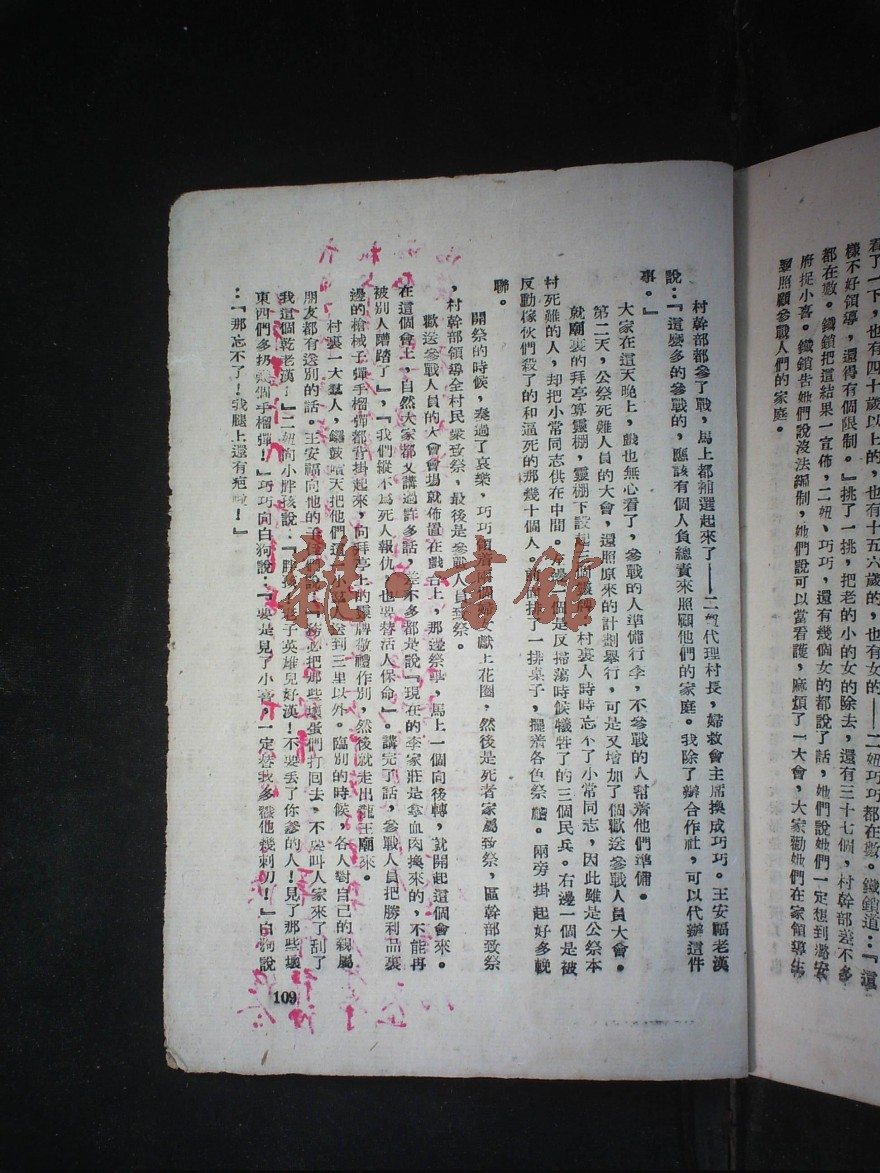 看了一下，也有四十歲以上的，也有十五六歲的，也有女的——二妞巧巧都在數。鐵鎖道：『這
樣不好領導，還得有個限制。』挑了一挑，把老的小的女的除去，還有三十七個，村幹部差不多
都在數。鐵鎖把這結果一宣佈，二妞、巧巧，還有幾個女的都說了話，她們說她們一定想到潞安
府捉小喜。鐵鎖告她們說沒法編制，她們說可以當看護，麻煩了一大會，大家勸她們在家領導
照顧參戰人們的家庭。
村幹部都參了戰，馬上都補選起來了——二妞代理村長，婦救會主席換成巧巧。王安福老漢
說：『這麼多的參戰的，應該有個人負總責來照顧他們的家庭。我除了辦合作社，可以代辦這件
事。』
大家在這天晚上，戲也無心看了，參戰的人準備行李，不參戰的人幫着他們準備。
第二天，公祭死難人員的大會，還照原來的計劃舉行，可是又增加了個歡送參戰人員大會。
就廟裏的拜亭算靈棚，靈棚下設起個靈牌，村裏人時時忘不了小常同志，因此雖是公祭本
村死難的人，却把小常同志供在中間。左邊一個是反掃蕩時候犧牲了的三個民兵。右邊一個是被
反動傢伙們殺了的和逼死的那幾十個人。擺了一排桌子，擺着各色祭禮。兩旁掛起好多輓
聯。
開祭的時候，奏過了哀樂，巧巧領着兩個獻上花圈，然後是死者家屬致祭，區幹部致祭
，村幹部領導全村民衆致祭，最後是參戰人員致祭。
歡送參戰人員的大會會場就佈置在戲台上，那邊祭畢，馬上一個向後轉，就開起這個會來。
在這個會上，自然大家都又講過許多話，差不多都是說『現在的李家莊是拿血肉換來的，不能再
被別人蹧踏了』，『我們縱不爲死人報仇，也要替活人保命』。講完了話，參戰人員把勝利品裏
邊的槍械子彈手榴彈都背掛起來，向拜亭上的靈牌敬禮作別，然後就走出龍王廟來。
村裏一大羣人，鑼鼓喧天把他們這小羣人送到三里以外。臨別的時候，各人對自己的親屬
朋友都有送別的話。王安福向他的子姪們說：『務必把那些壞蛋們打回去，不要叫人家來了刮了
我這個乾老漢！』二妞向小胖孩說：『胖孩！老子英雄兒好漢！不要丟了你爹的人！見了那些壞
東西們多扔幾個手榴彈！』巧巧向白狗說：『要是見了小喜，一定替我多戳他幾刺刀！』白狗說
：『那忘不了！我腿上還有疤啦！』
109
龍·書館